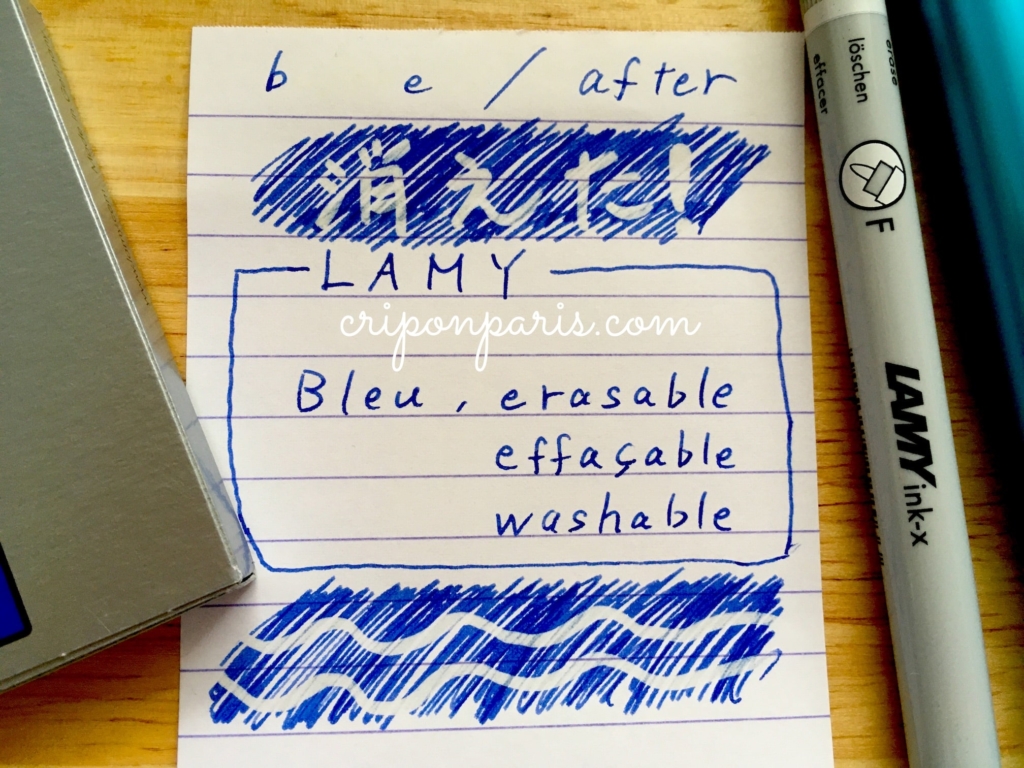 b e / after
消えた!
LAMY
criponparis.com
Bleu, erasable
effaçable
washable
erase
löschen
effacer
F
LAMY ink-x